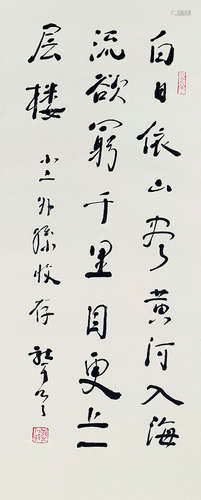 白日依山尽黄河入海
流欲窮千里目更上一
层楼
外孫收存